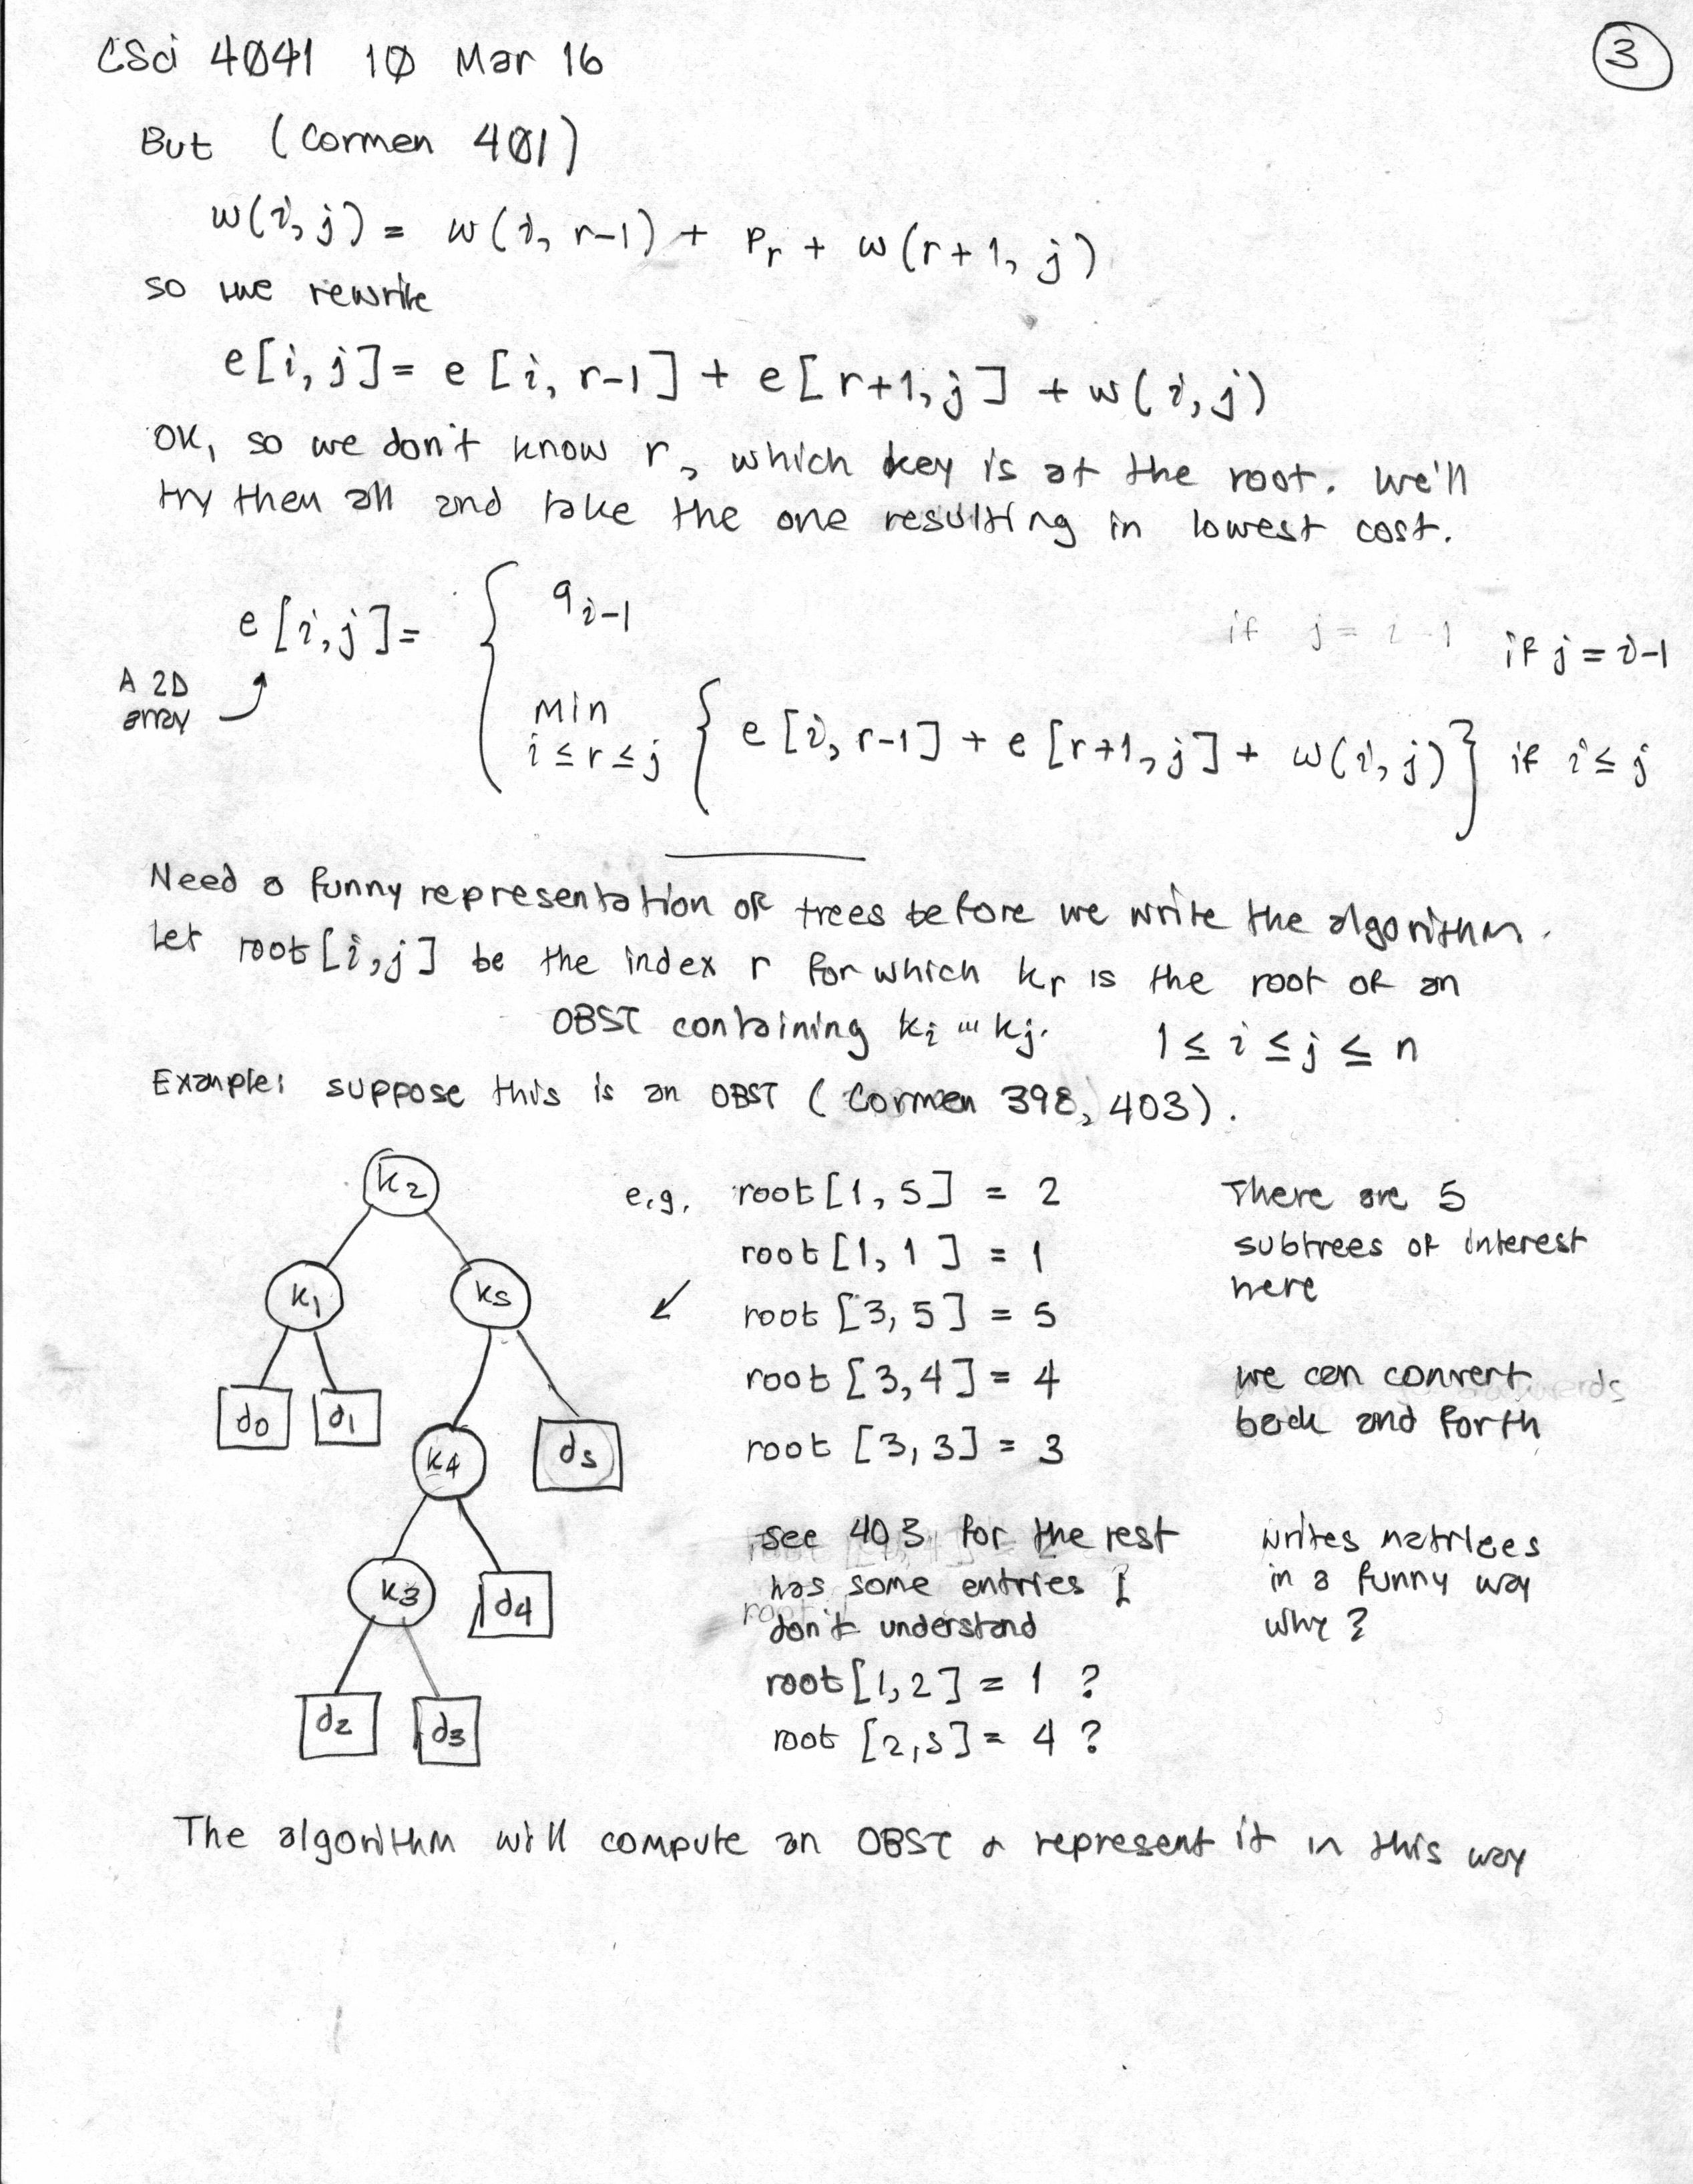 CSci 4041 10 Mar 16
3
But (Cormen 401)
w(i, j) = w(i, r-1) + Pr + w(r+1, j)
so we rewrite
e[i, j] = e[i, r-1] + e[r+1, j] + w(i, j)
OK, so we don't know r, which key is at the root. We'll
try them all and take the one resulting in lowest cost.
qi-1
if j = i-1
if j = i-1
e[i, j] =
A 2D
array
min
i ≤ r ≤ j
{ e[i, r-1] + e[r+1, j] + w(i, j) } if i ≤ j
Need a funny representation of trees before we write the algorithm.
Let root[i, j] be the index r for which kr is the root of an
OBST containing ki ... kj. 1 ≤ i ≤ j ≤ n
Example: suppose this is an OBST (Cormen 398, 403).
k2
k1
k5
d0
d1
k4
d5
k3
d4
d2
d3
e.g. root[1, 5] = 2
root[1, 1] = 1
root[3, 5] = 5
root[3, 4] = 4
root[3, 3] = 3
There are 5
subtrees of interest
here
we can convert
back and forth
see 403 for the rest
has some entries I
don't understand
root[1, 2] = 1 ?
root[2, 5] = 4 ?
writes matrices
in a funny way
why?
The algorithm will compute an OBST & represent it in this way